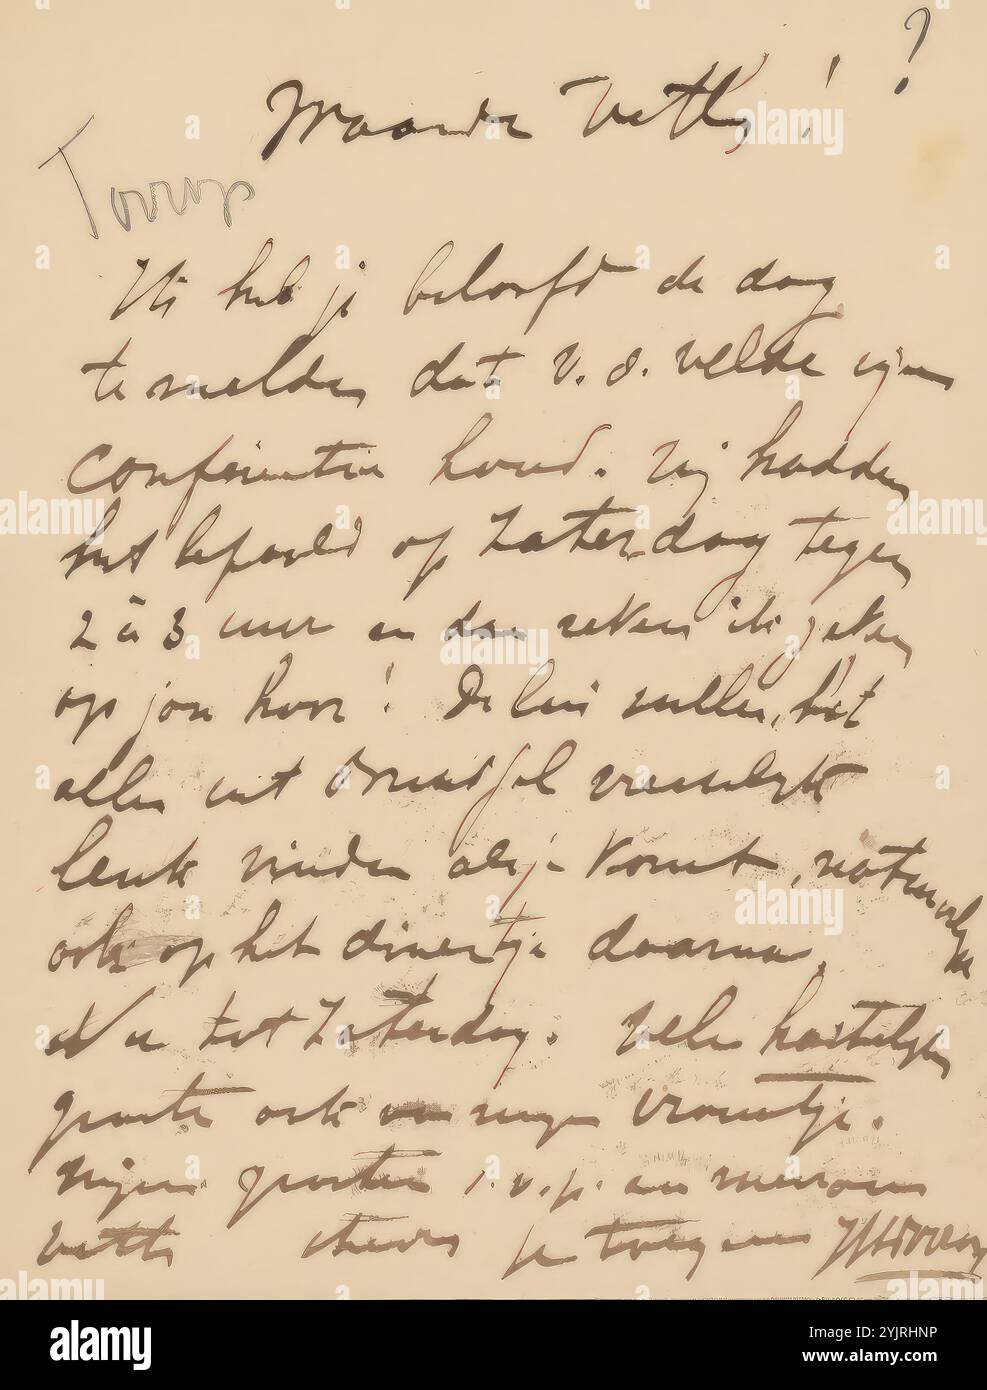 ?
Waarde Veth!
Toorop
Ik heb je beloofd de dag
te melden dat v. d. Velde zijn
Conferentie houd. Wij hadden
het bepaald op Zaterdag tegen
2 à 3 uur en dan reken ik zeker
op jou hoor! De lui zullen het
allen uit Brussel
leuk vinden als je komt, natuurlijk
ook op het dineertje daarna.
Nu tot Zaterdag. Vele hartelijke
groete ook van mijn vrouwtje.
Mijn groeten s.v.p. aan mevrouw
Veth je toegenen JThToorop
alamy
Image ID: 2YJRHNP
www.alamy.com